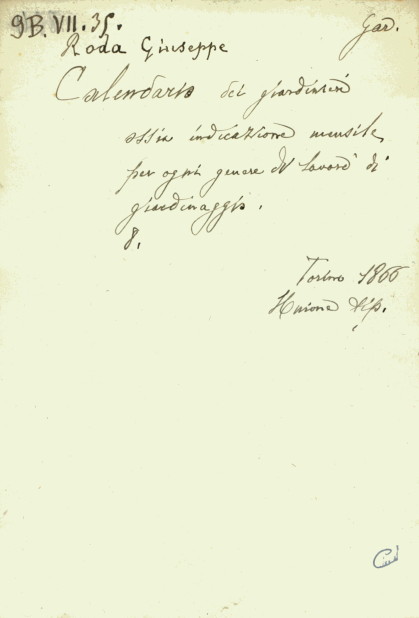 9B.VII.35.
Gad.
Roda Giuseppe
Calendario dei giardinieri
ossia indicazione mensile
per ogni genere di lavori di
giardinaggio.
8.
Torino 1866
Unione tip.